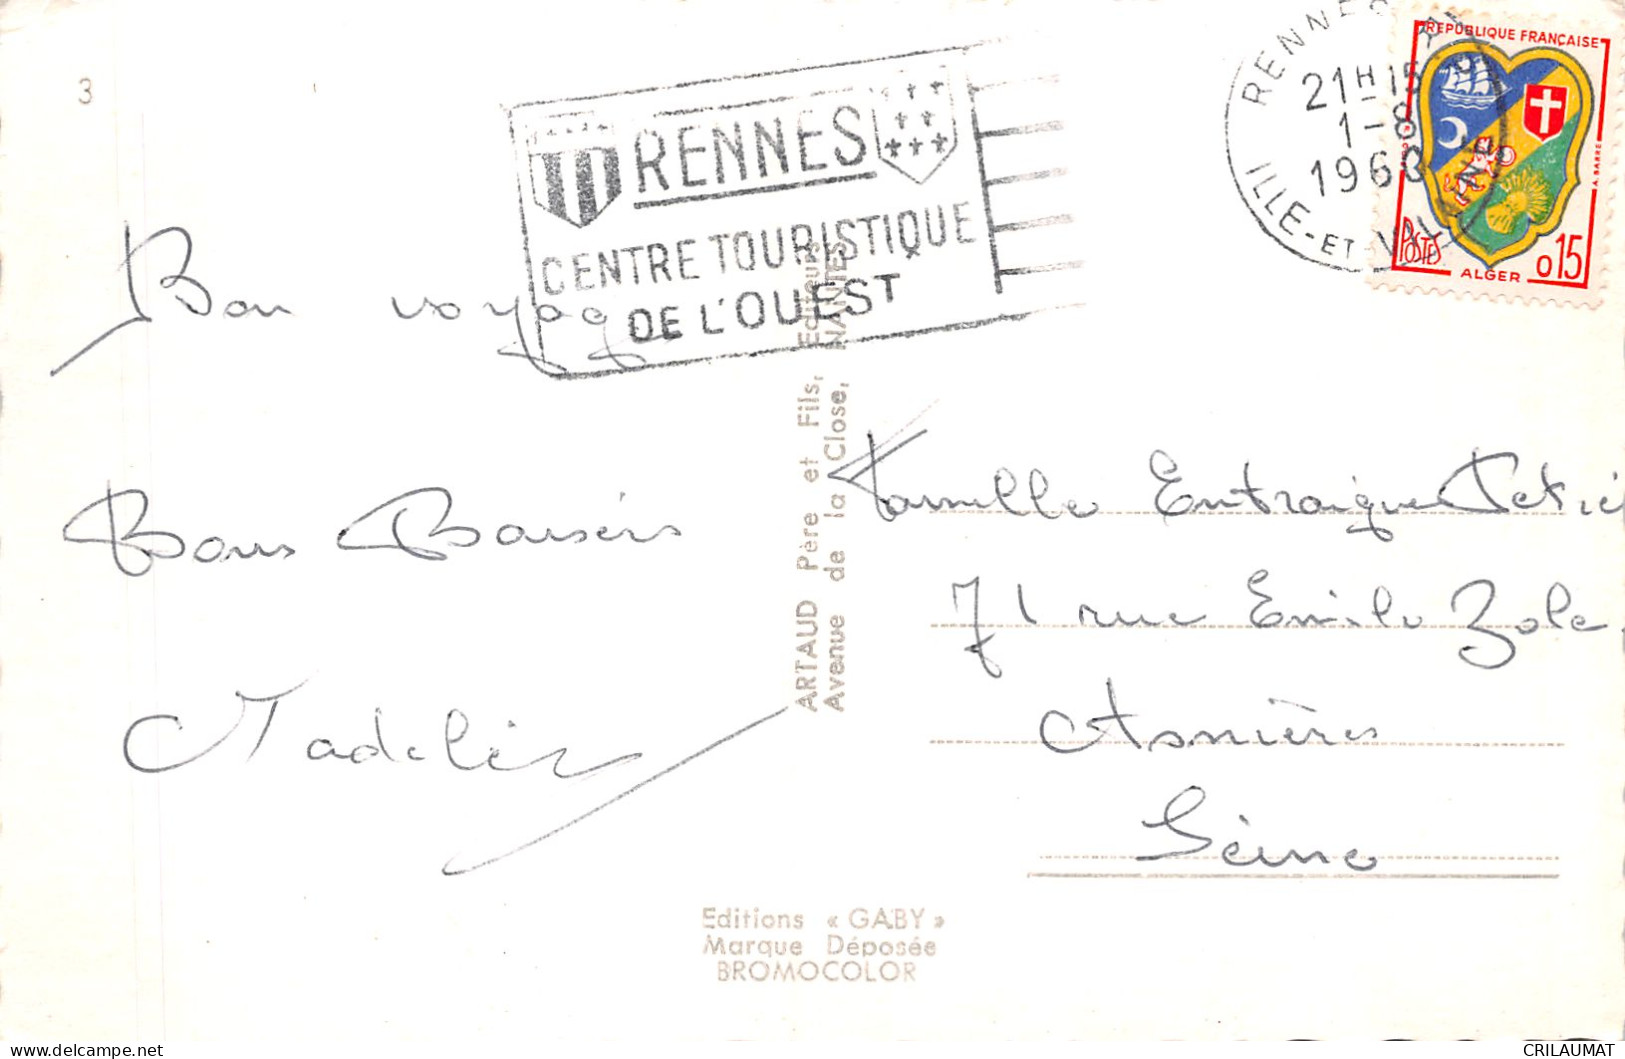 3
RENNES
CENTRE TOURISTIQUE
DE L'OUEST
RENNES
21H15
1-8
1960
ILLE-ET-VILAINE
REPUBLIQUE FRANÇAISE
POSTES
ALGER
0,15
Bon voyage
Bons Baisers
ARTAUD Père et Fils, Editeurs
Avenue de la Close, NANTES
Famille Entraigues
71 rue Emile Zola
Asnières
Seine
Editions « GABY »
Marque Déposée
BROMOCOLOR
CRILAUMAT